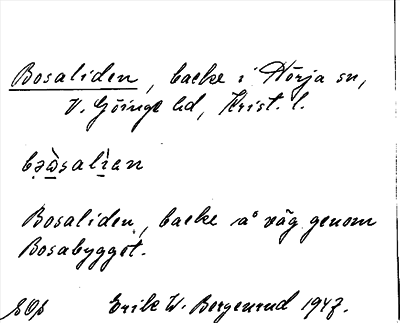 Bosaliden, backe i Hörja sn,
V. Göinge hd, Krist. l.
bə̀ωsalìan
Bosaliden, backe å väg genom
Bosabygget.
Erik W. Bergenrud 1947.